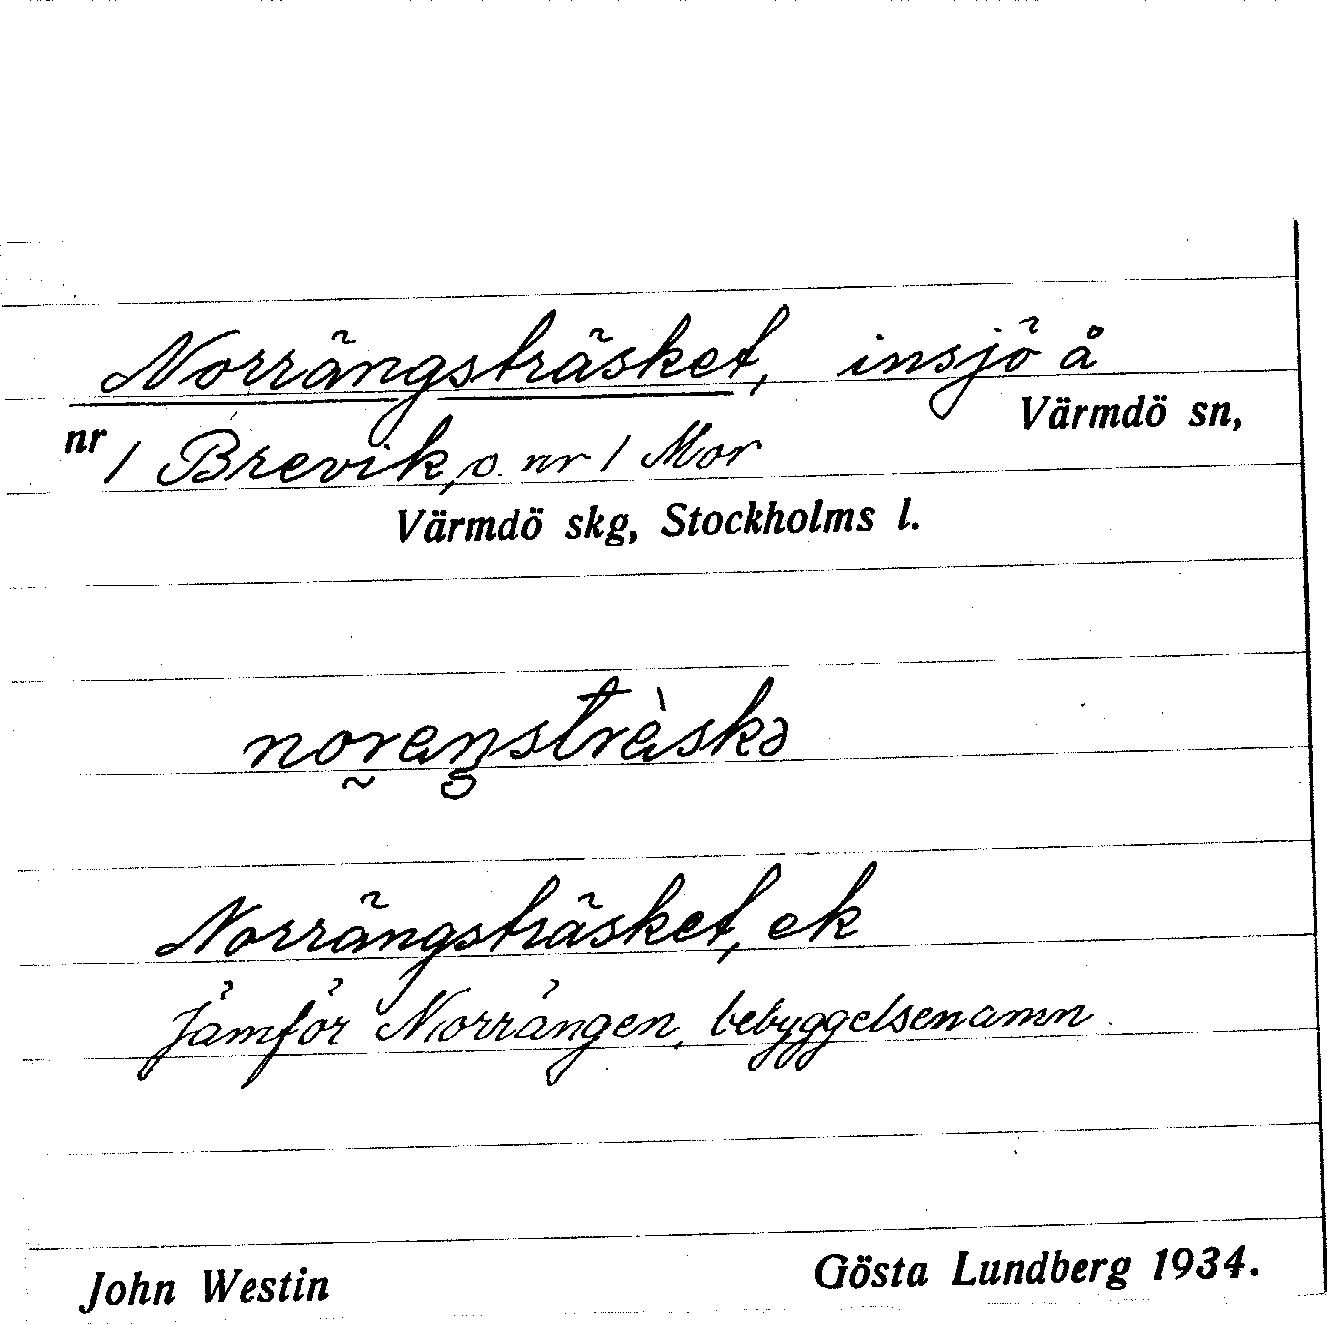 Norrängsträsket, insjö å
Värmdö sn,
nr 1 Brevik, o. nr 1 Mor
Värmdö skg, Stockholms l.
noraŋstràskə
Norrängsträsket, ek
Jämför Norrängen, bebyggelsenamn
John Westin
Gösta Lundberg 1934.